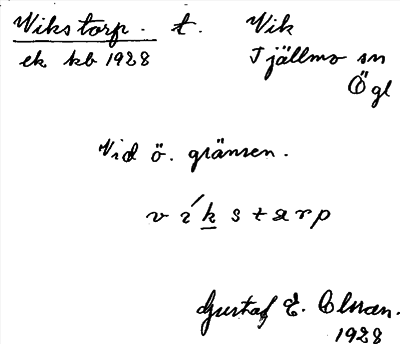 Wikstorp. t. Vik
ek kb 1928 Tjällmo sn
Ögl
Vid ö. gränsen.
v í k s t a r p
Gustaf E. Olsson.
1928